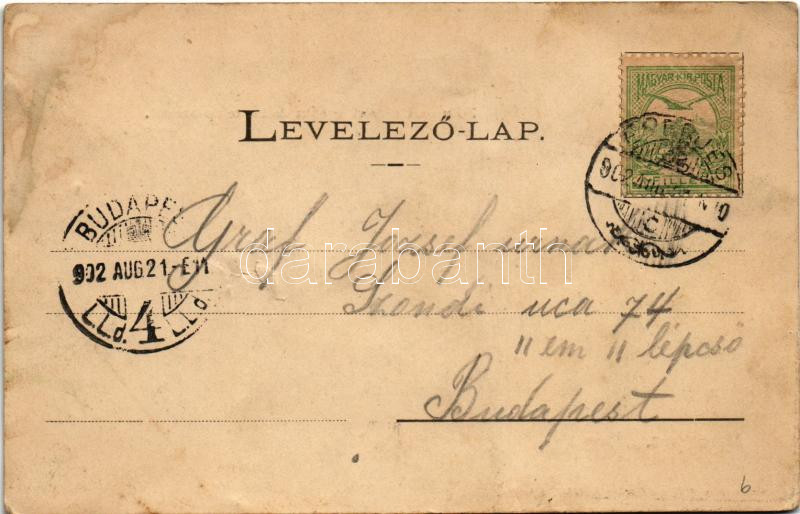 MAGYAR·KIR·POSTA
LEVELEZŐ-LAP.
EPERJES
902 AUG
BUDAPE
902 AUG 21 - E 11
4
Gráf József urnak
Szondi uca 74
II em II lépcső
Budapest
darabanth.com
6